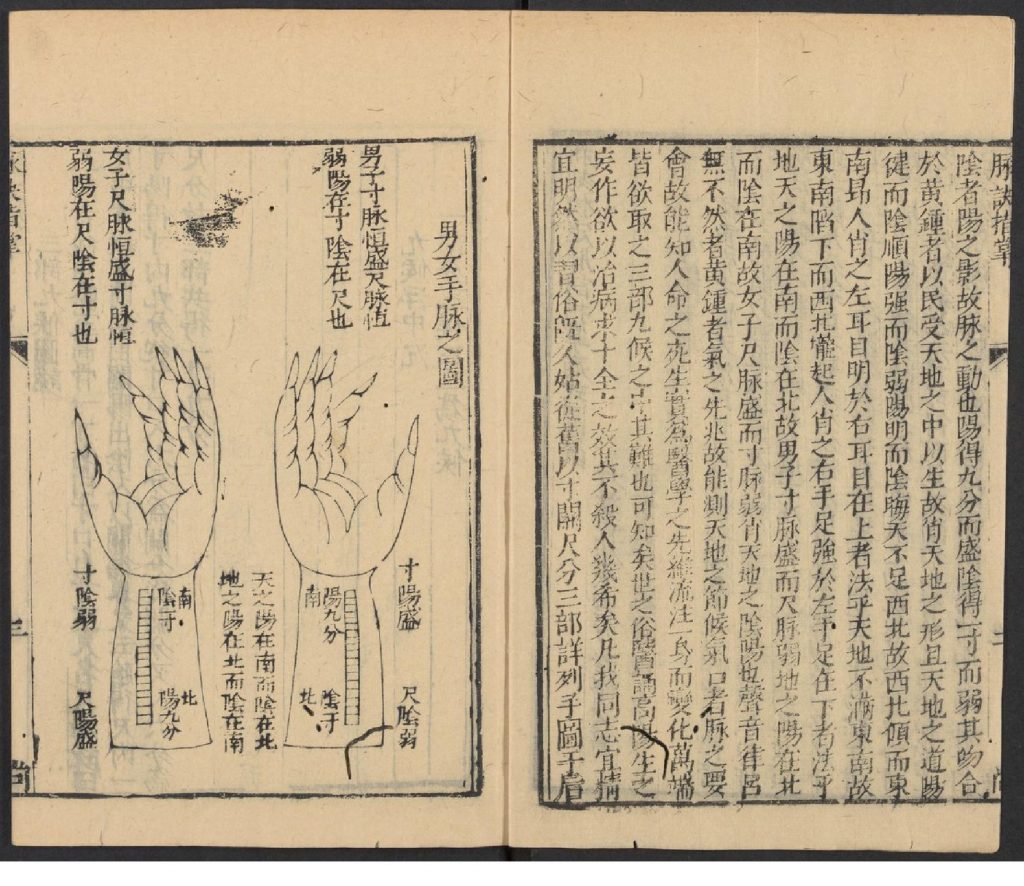 脉訣指掌
陰者陽之影故脉之動也陽得九分而盛陰得一寸而弱其吻合
於黃鍾者以民受天地之中以生故肖天地之形且天地之道陽
健而陰順陽强而陰弱陽明而陰晦天不足西北故西北傾而東
南昻人肖之左耳目明於右耳目在上者法乎天地不滿東南故
東南陷下而西北壠起人肖之右手足強於左手足在下者法乎
地天之陽在南而陰在北故男子寸脉盛而尺脉弱地之陽在北
而陰在南故女子尺脉盛而寸脉弱肖天地之陰陽也聲音律呂
無不然者黃鍾者氣之先兆故能測天地之節候氣口者脉之要
會故能知人命之死生實為醫學之先務流注一身而變化萬端
皆欲取之三部九候之中其難也可知矣世之俗醫誦高陽生之
妄作欲以治病求十全之效其不殺人幾希矣凡我同志宜精
宜明然以習俗旣久姑從舊以寸關尺分三部詳列手圖于后
二
男女手脉之圖
男子寸脉恒盛尺脉恒
弱陽在寸陰在尺也
寸陽盛
尺陰弱
陽九分
南
陰一寸
北
天之陽在南而陰在北
地之陽在北而陰在南
南
陰一寸
北
陽九分
女子尺脉恒盛寸脉恒
弱陽在尺陰在寸也
寸陰弱
尺陽盛
三